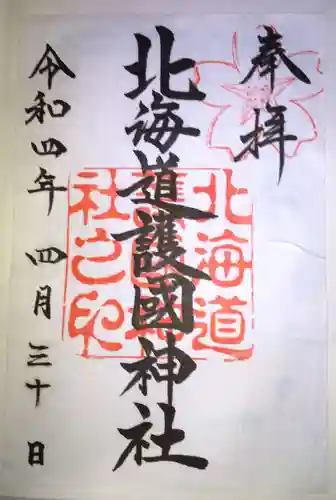 奉拝
北海道護國神社
北海道
護國神
社之印
令和四年 四月 三十 日